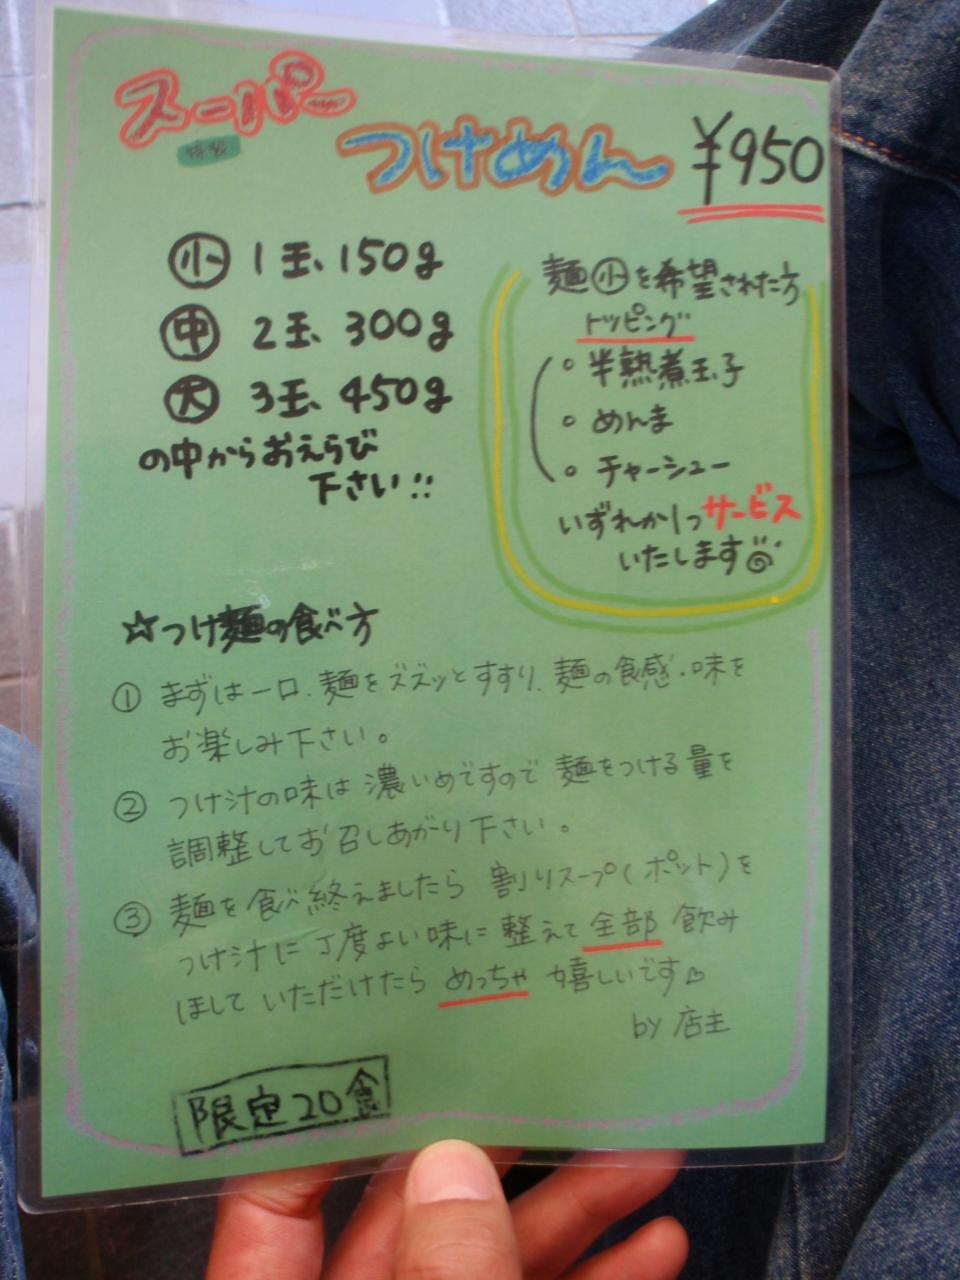 スーパー
特製
つけめん ¥950
小 1玉、150g
中 2玉 300g
大 3玉、450g
の中からおえらび
下さい!!
麺小を希望された方
トッピング
半熟煮玉子
めんま
チャーシュー
いずれか1つサービス
いたします
☆つけ麺の食べ方
① まずは一口、麺をズズッとすすり、麺の食感・味を
お楽しみ下さい。
② つけ汁の味は濃いめですので麺をつける量を
調整してお召しあがり下さい。
③ 麺を食べ終えましたら 割りスープ(ポット)を
つけ汁に丁度よい味に整えて全部飲み
ほしていただけたらめっちゃ嬉しいです♡
by 店主
限定20食